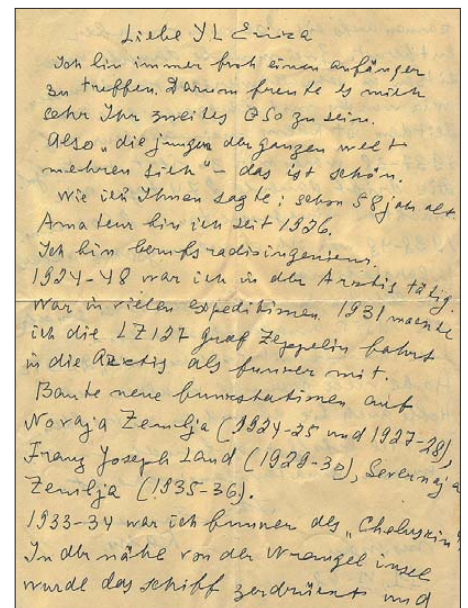 Liebe YL Erica
Ich bin immer froh einen anfänger
zu treffen. Darum freute es mich
sehr Ihr zweites QSO zu sein.
Also „die jungen der ganzen welt
mehren sich" – das ist schön.
Wie ich Ihnen sagte: schon 58 jah alt.
Amateur bin ich seit 1926.
Ich bin berufsradioingenieur.
1924-48 war ich in der Arktis tätig.
War in vielen expeditionen. 1931 machte
ich die LZ127 Graf Zeppelin fahrt
in die Arktis als funker mit.
Baute neue funkstationen auf
Novaja Zemlja (1924-25 und 1927-28),
Franz Joseph Land (1929-30), Severnaja
Zemlja (1935-36).
1933-34 war ich funker des „Cheluskin"
In der nähe von der Wrangel insel
wurde das schiff zerdrückt und